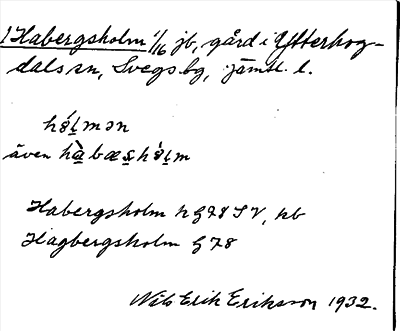 1 Habergsholm 1/16 jb, gård i Ytterhog-
dals sn, Svegs bg, Jämtl. l.
hólmən
även hàbæshólm
Habergsholm hG78 SV, hb
Hagbergsholm G78
Nils Erik Eriksson 1932.